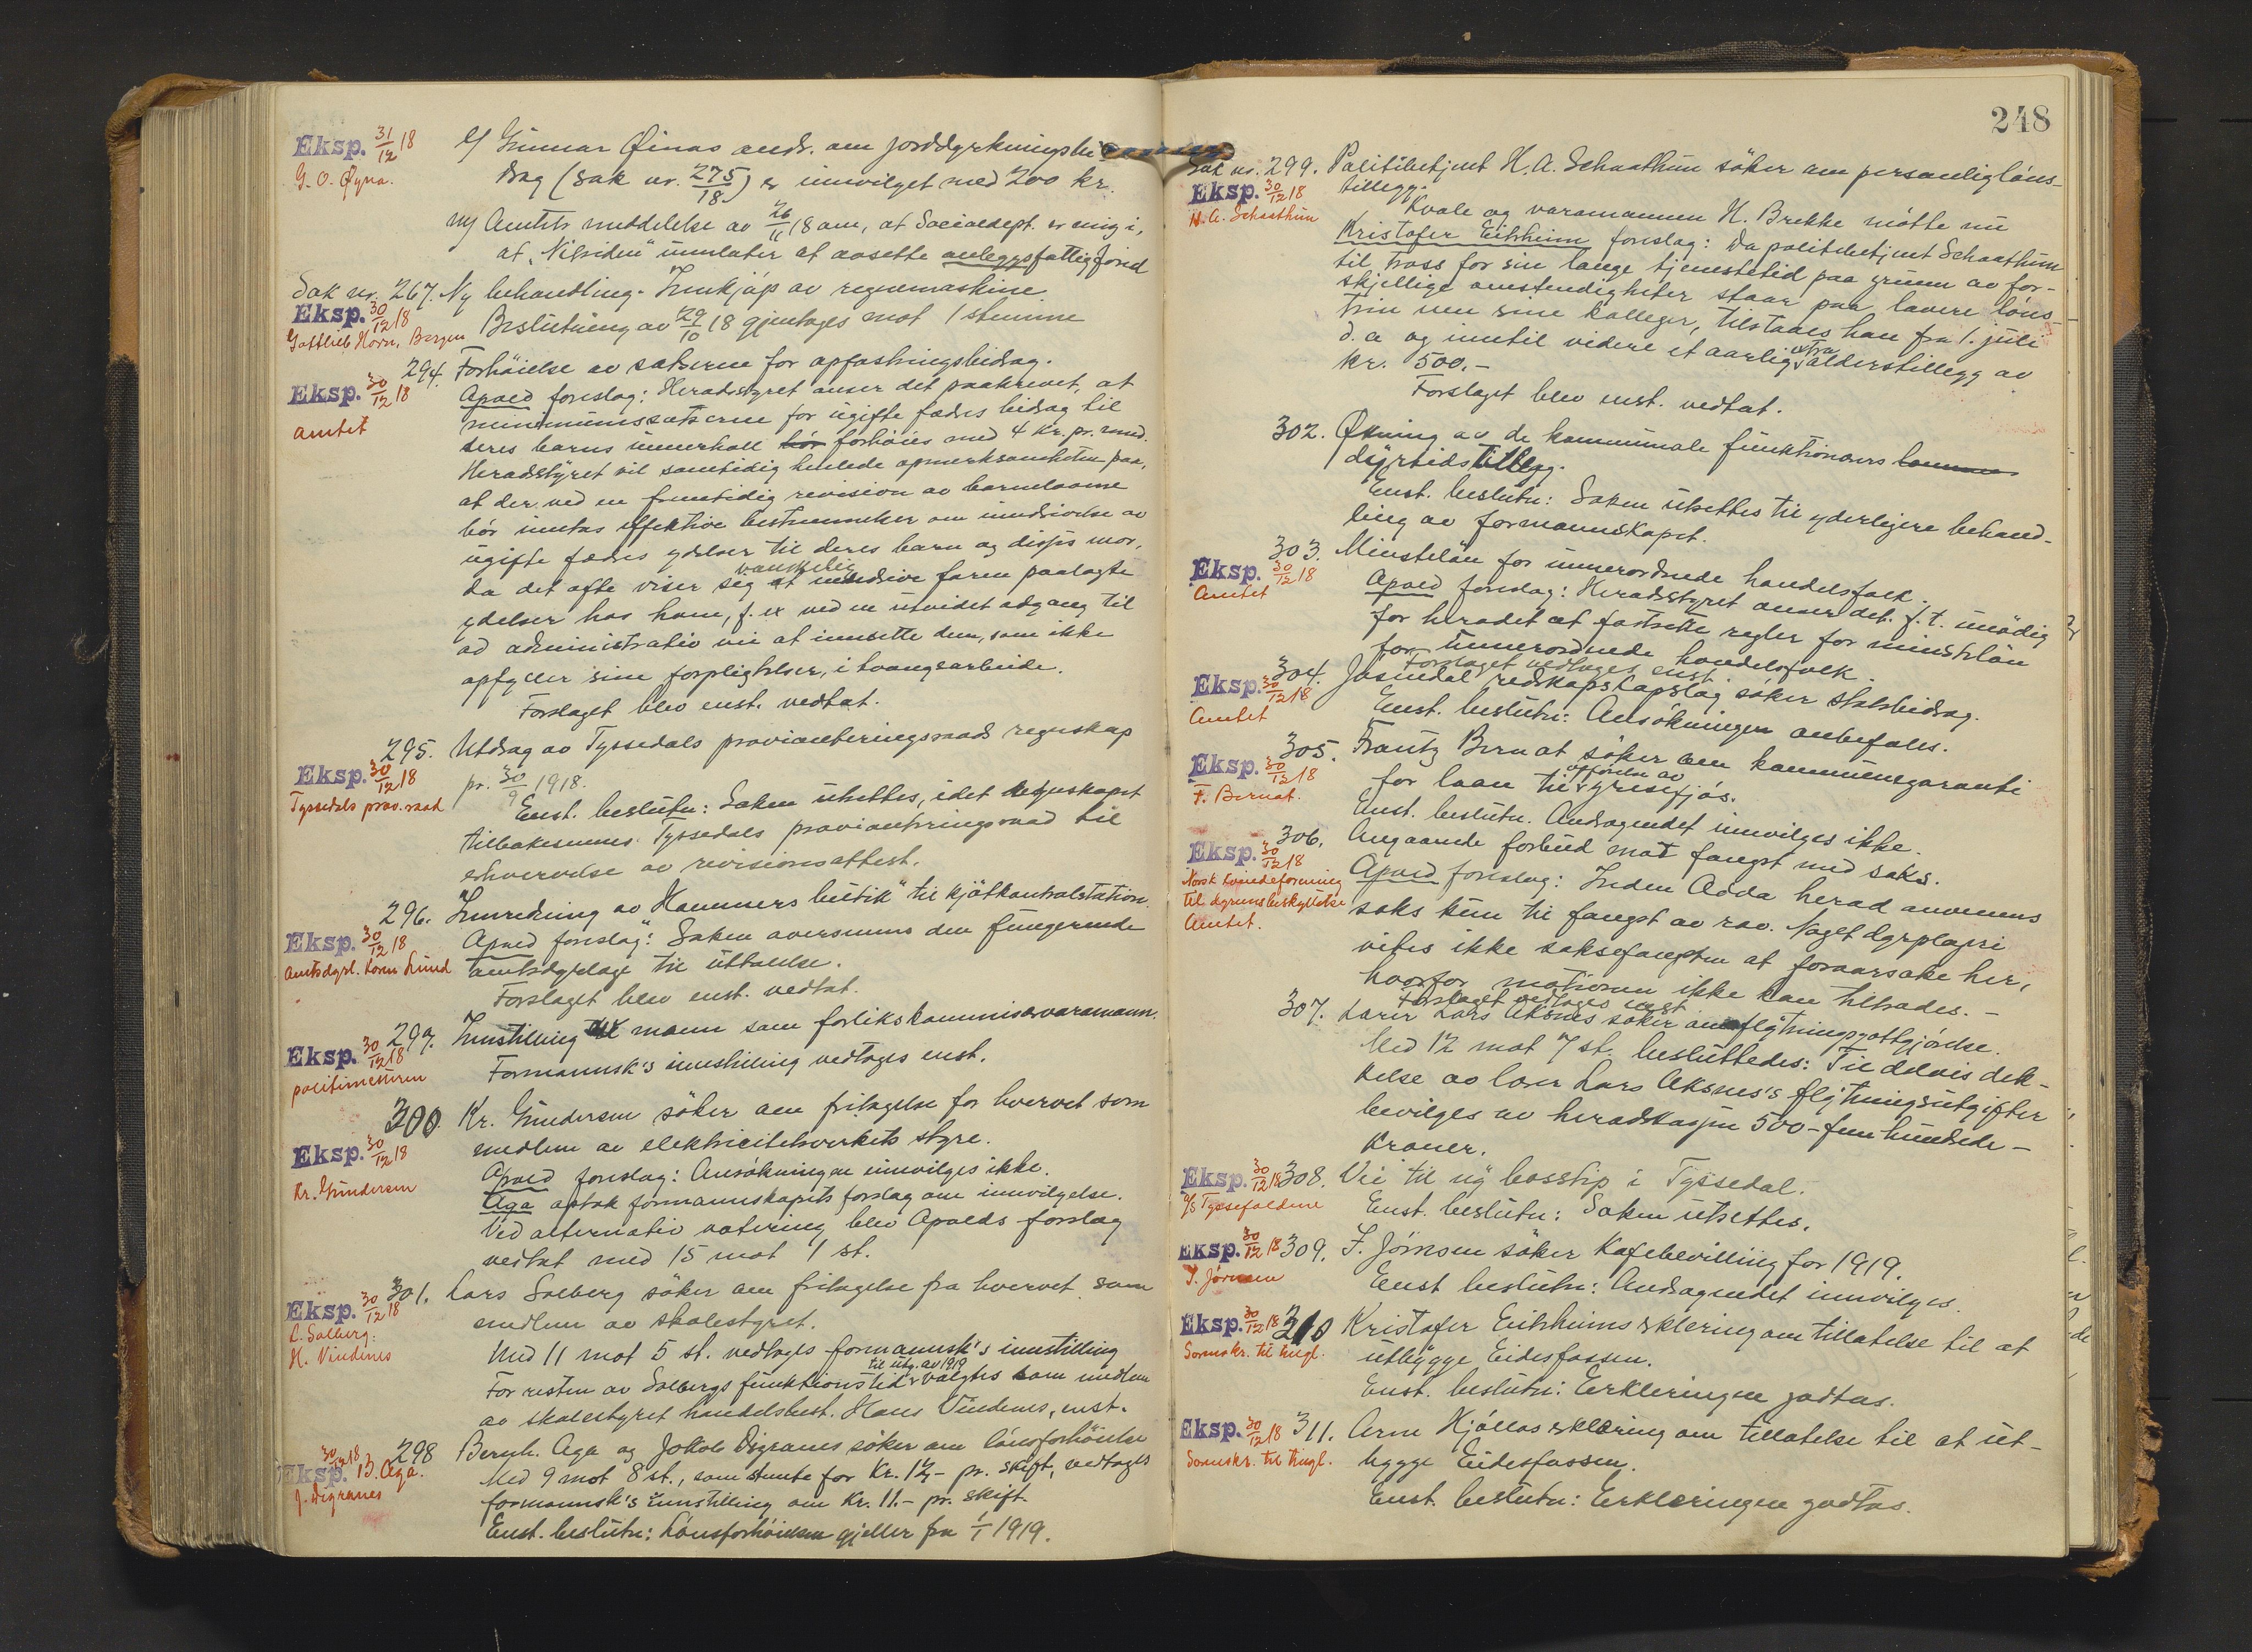 Eksp. 31/12 18
G. O. Øyna.
l/ Gunnar Øinas ands. om jorddyrkningsbi-
drag (sak nr. 275/18) er innvilget med 200 kr.
m/ Amtets meddelelse av 26/11 18 om, at Socialdept. er enig i,
at "Nitriden" unnlater at avsette anleggsfattigfond
Sak nr. 267. Ny behandling. Innkjøp av regnemaskine.
Eksp. 30/12 18
Gottlieb Horn, Bergen
Beslutning av 29/10 18 gjentages mot 1 stemme
294. Forhøielse av satserne for opfostringsbidrag.
Eksp. 30/12 18
Amtet
Apold forslag: Heradsstyret anser det paakrevet, at
minimumssatserne for ugifte fædres bidrag til
deres barns unnerhold bør forhøies med 4 kr. pr. mnd.
Heradsstyret vil samtidig henlede opmerksomheten paa,
at der ved en fremtidig revision av barnelovene
bør inntas effektive bestemmelser om inndrivelse av
ugifte fædres ydelser til deres barn og disses mor,
da det ofte viser sig vanskelig at inndrive faren paalagte
ydelser hos ham, f. ex ved en utvidet adgang til
ad administrativ vei at innsette dem, som ikke
opfyller sine forpligtelser, i tvangsarbeide.
Forslaget blev enst. vedtat.
295. Utdrag av Tyssedals provianteringsraads regnskap
Eksp. 30/12 18
Tyssedals prov.raad
pr. 30/9 1918.
Enst. beslutn: Saken utsettes, idet regnskapet
tilbakesennes Tyssedals provianteringsraad til
erhvervelse av revisionsattest.
296. Innredning av "Hammers butik" til kjøtkontrolstation.
Eksp. 30/12 18
Amtsdyrl. Korm Lund
Apold forslag: Saken oversennes den fungerende
amtsdyrlæge til uttalelse.
Forslaget blev enst. vedtat.
297. Innstilling til mann som forlikskommissærvaramann.
Eksp. 30/12 18
politimesteren
Formannsk's innstilling vedtages enst.
300. Kr. Gundersen søker om fritagelse for hvervet som
Eksp. 30/12 18
Kr. Gundersen
medlem av elektricitetsverkets styre.
Apold forslag: Ansøkningen innvilges ikke.
Aga optok formannskapets forslag om innvilgelse.
Ved alternativ votering blev Apolds forslag
vedtat med 15 mot 1 st.
301. Lars Solberg søker om fritagelse fra hvervet som
Eksp. 30/12 18
L. Solberg:
H. Vindenes
medlem av skolestyret.
Med 11 mot 5 st. vedtages formannsk's innstilling
For resten av Solbergs funktionstid til utg. av 1919 valgtes som medlem
av skolestyret handelsbest. Hans Vindenes, enst.
298 Bernh. Aga og Jakob Digranes søker om lønsforhøielse
30/12 18
Eksp. B. Aga.
J. Digranes
Med 9 mot 8 st., som stemte for Kr. 12,- pr. skift, vedtages
formannsk's innstilling om Kr. 11.- pr. skift.
Enst. beslutn: Lønsforhøielsen gjeller fra 1/1 1919.
248
Sak nr. 299. Politibetjent H. A. Schaathun søker om personlig løns-
Eksp. 30/12 18
H. A. Schaathun
tillegg.
Kvale og varamannen H. Brekke møtte nu
Kristofer Eitrheim forslag: Da politibetjent Schaathun
til tross for sin lange tjenestetid paa grunn av for-
skjellige omstendigheter staar paa lavere løns-
trin enn sine kolleger, tilstaaes han fra 1. juli
d. a og inntil videre et aarlig extra alderstillegg av
kr. 500,-
Forslaget blev enst. vedtat.
302. Økning av de kommunale funktionærers
dyrtidstillegg.
Enst. beslutn: Saken utsettes til yderligere behand-
ling av formannskapet.
303. Minsteløn for unnerordnede handelsfolk.
Eksp. 30/12 18
Amtet
Apold forslag: Heradsstyret anser det f. t. unødig
for heradet at fastsette regler for minsteløn
for unnerordnede handelsfolk.
Forslaget vedtages enst.
304. Jøsendal redskapskapslag søker statsbidrag.
Eksp. 30/12 18
Amtet
Enst. beslutn: Ansøkningen anbefales.
305. Frantz Bernat søker om kommunegaranti
Eksp. 30/12 18
F. Bernat.
for laan til opførelse av grisefjøs.
Enst. beslutn. Andragendet innvilges ikke.
306. Angaaende forbud mot fangst med saks.
Eksp. 30/12 18
Norsk kvindeforening
til dyrenes beskyttelse
Amtet.
Apold forslag: Inden Odda herad anvennes
saks kun til fangst av rev. Noget dyrplageri
vites ikke saksefangsten at foraarsake her,
hvorfor motionen ikke kan tiltrædes. -
Forslaget vedtages enst
307. Lærer Lars Aksnes søker om flytningsgottgjørelse.
Med 12 mot 7 st. besluttedes: Til delvis dek-
kelse av lærer Lars Aksnes's flytningsutgifter
bevilges av heradskassen 500 - fem hundrede -
kroner.
308. Vei til ny bosstip i Tyssedal.
Eksp. 30/12 18
A/S Tyssefaldene
Enst. beslutn: Saken utsettes.
309. J. Jørnsen søker kafebevilling for 1919.
Eksp. 30/12 18
J. Jørnsen
Enst beslutn: Andragendet innvilges.
310 Kristofer Eitrheims erklering om tillatelse til at
Eksp. 30/12 18
Sorenskr. til tingl.
utbygge Eidesfossen.
Enst. beslutn: Erkleringen godtas.
311. Arne Hjøllos erklering om tillatelse til at ut-
Eksp. 30/12 18
Sorenskr. til tingl.
bygge Eidesfossen.
Enst. beslutn: Erkleringen godtas.